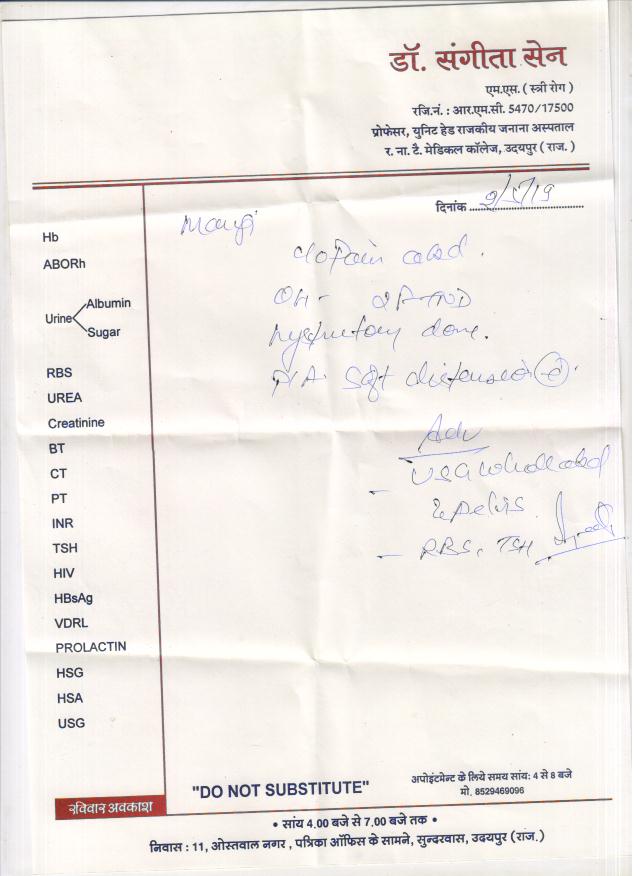 डॉ. संगीता सेन
एम.एस. ( स्त्री रोग )
रजि.नं. : आर.एम.सी. 5470/17500
प्रोफेसर, युनिट हेड राजकीय जनाना अस्पताल
र. ना. टै. मेडिकल कॉलेज, उदयपुर ( राज. )
दिनांक
Hb
ABORh
Urine Albumin
Sugar
RBS
UREA
Creatinine
BT
CT
PT
INR
TSH
HIV
HBsAg
VDRL
PROLACTIN
HSG
HSA
USG
c/o Pain abd.
OH-
hysterectomy done.
P/A. Soft distension
Adv
- USG whole abd
pelvis.
- RBS, TSH
"DO NOT SUBSTITUTE"
अपोइंटमेन्ट के लिये समय सांय: 4 से 8 बजे
मो. 8529469096
रविवार अवकाश
• सांय 4.00 बजे से 7.00 बजे तक •
निवास : 11, ओस्तवाल नगर , पत्रिका ऑफिस के सामने, सुन्दरवास, उदयपुर (राज.)